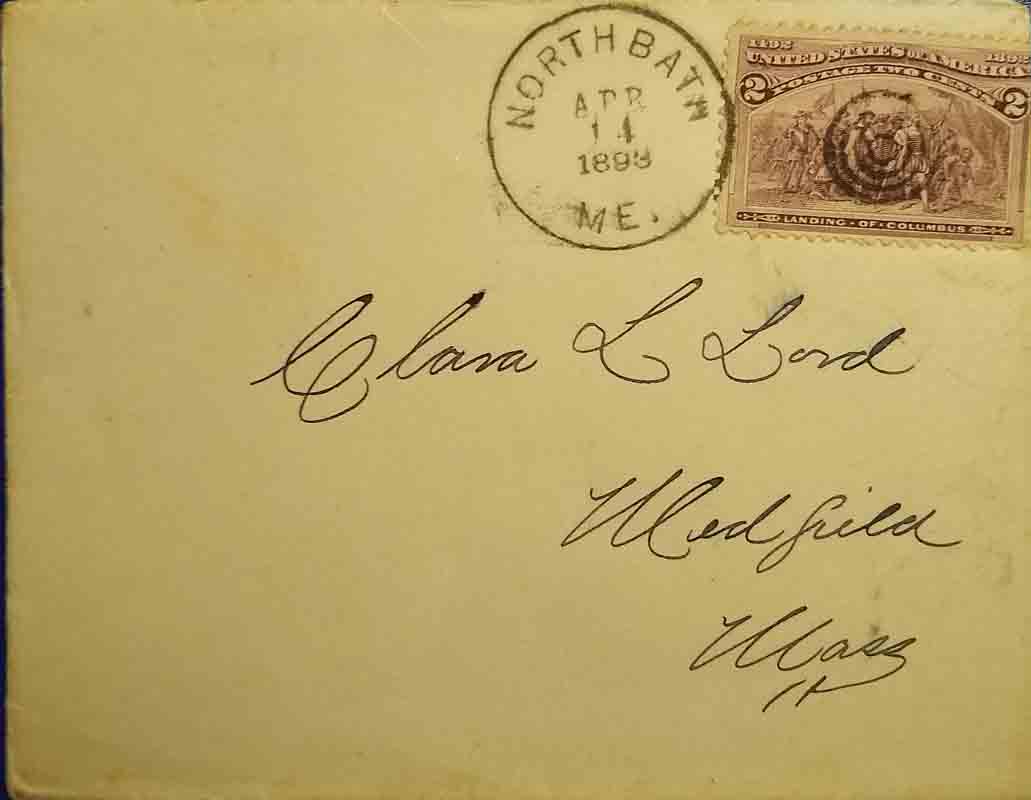 NORTH BATH
APR
14
1893
ME.
1492 1892
UNITED STATES OF AMERICA
2 POSTAGE TWO CENTS 2
LANDING · OF · COLUMBUS
Clara L Lord
Medfield
Mass